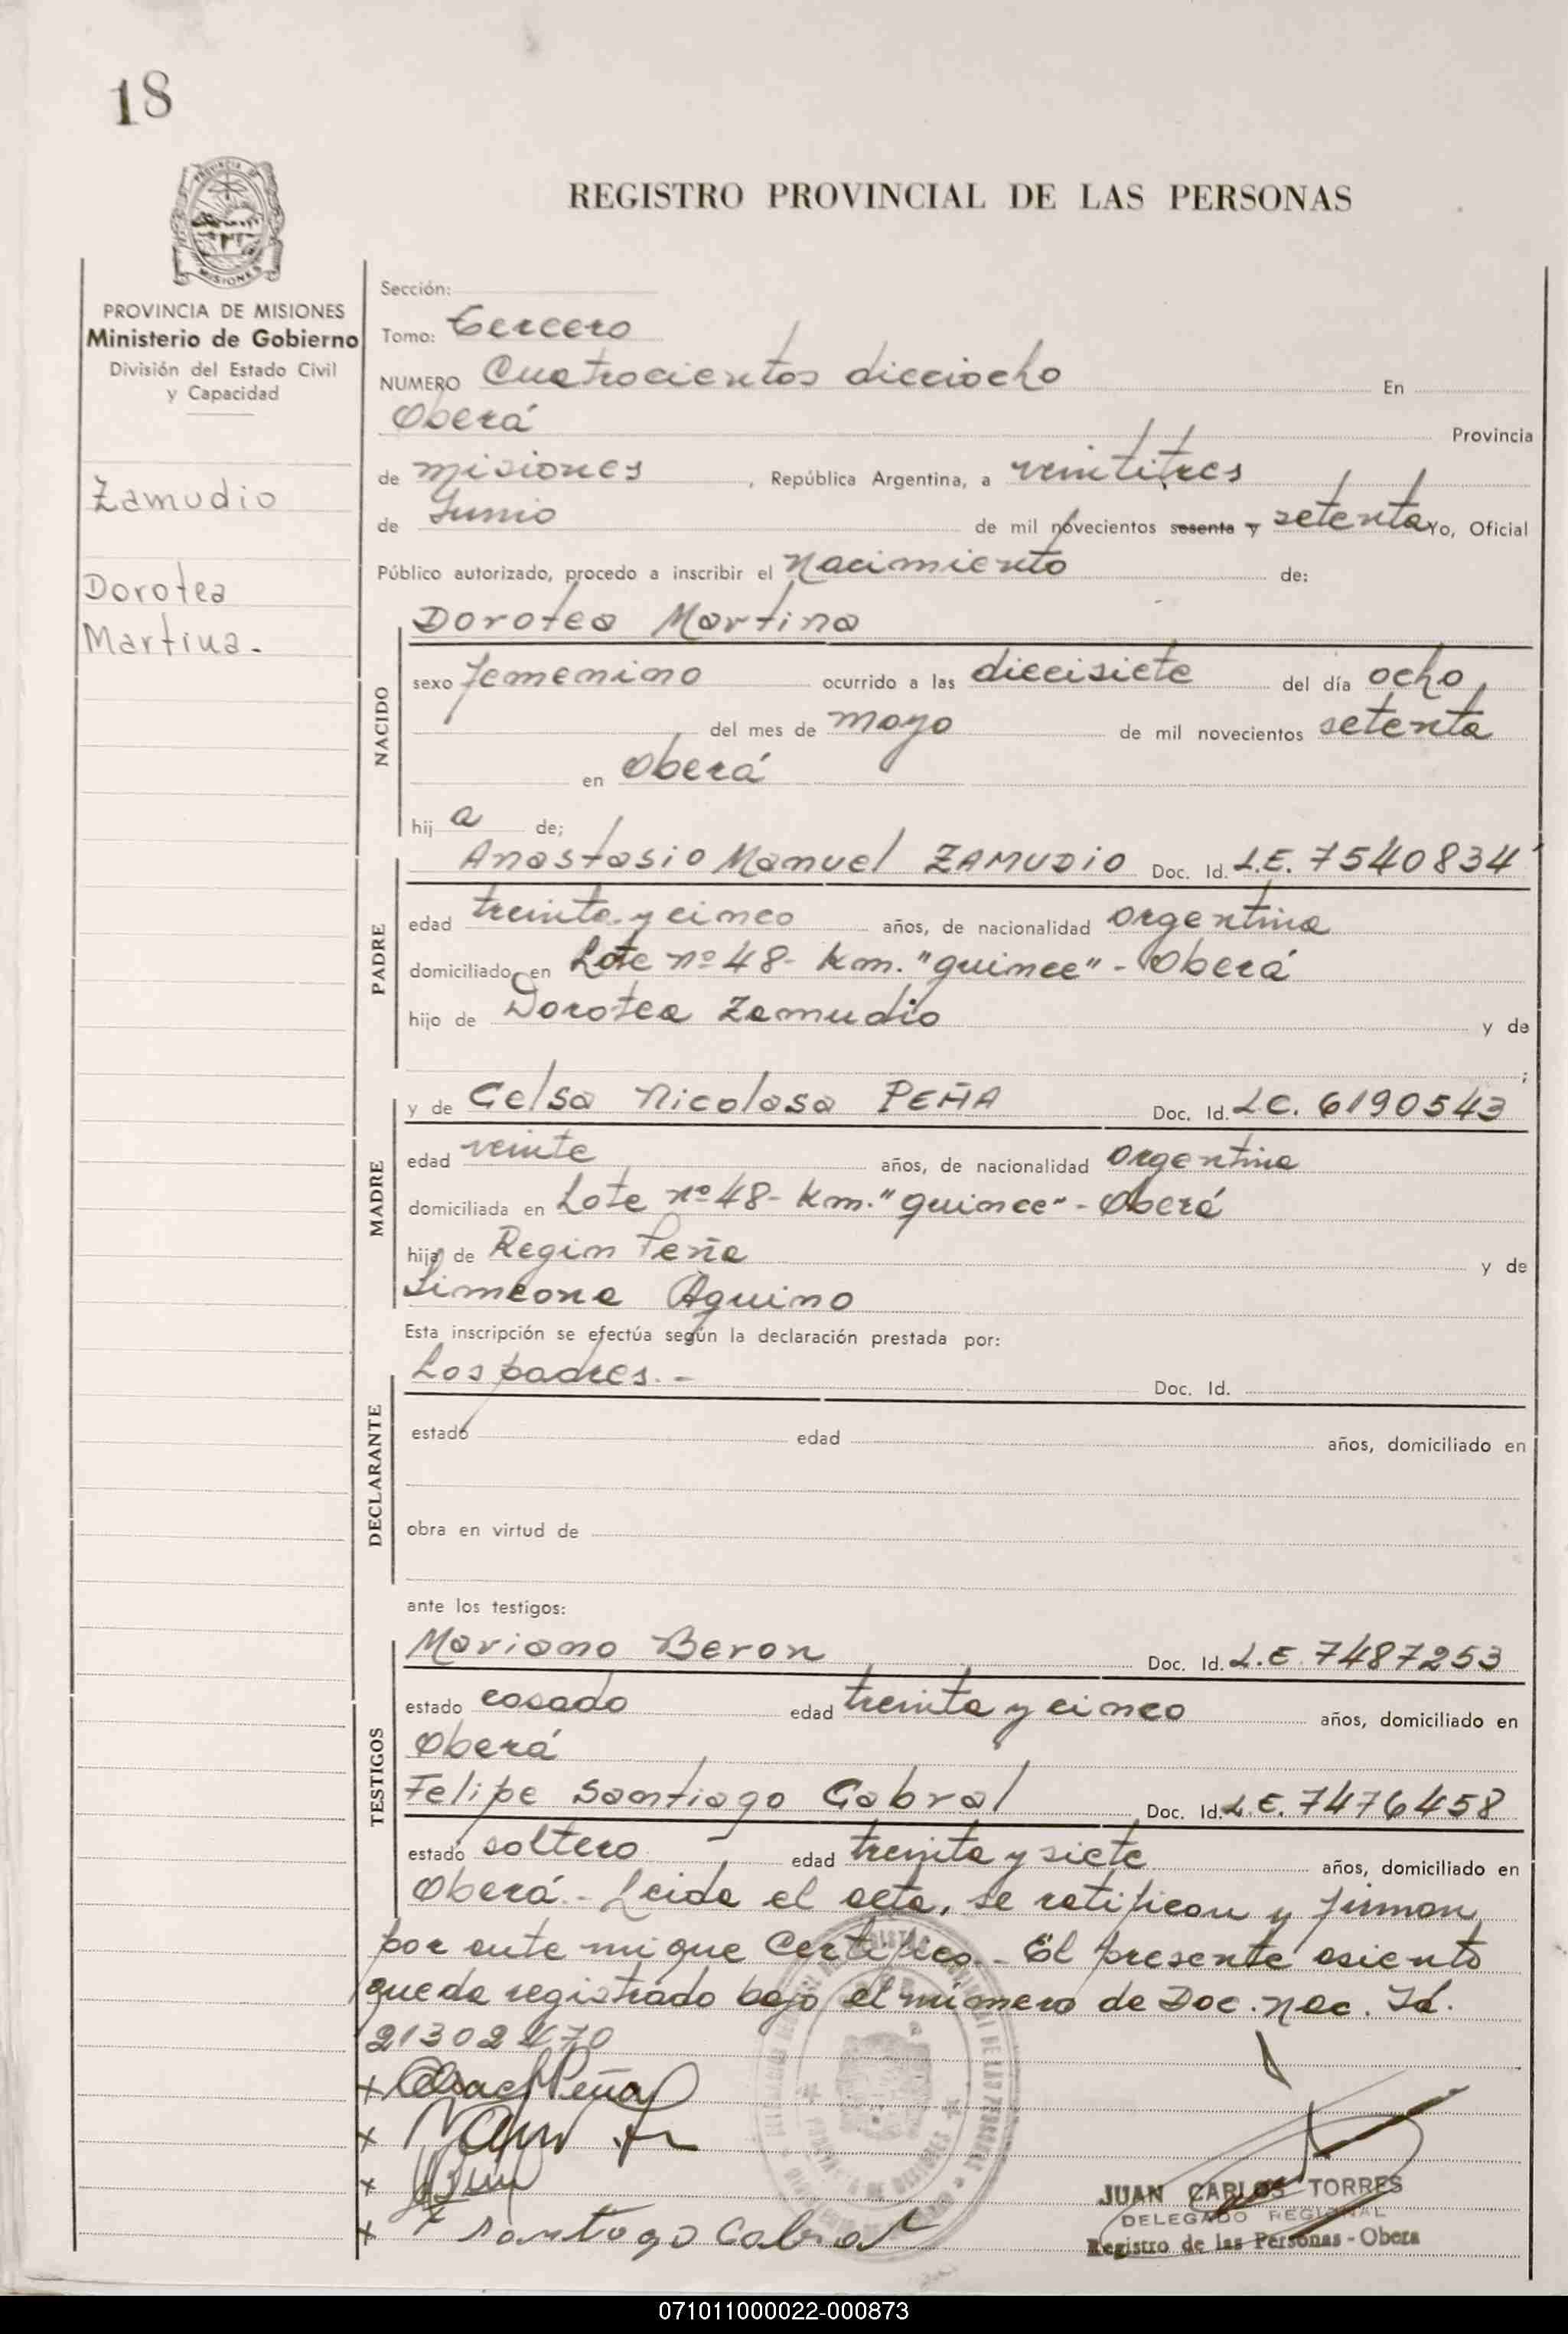 18
REGISTRO PROVINCIAL DE LAS PERSONAS
PROVINCIA
MISIONES
PROVINCIA DE MISIONES
Ministerio de Gobierno
División del Estado Civil
y Capacidad
Zamudio
Dorotea
Martina.
Sección:
Tomo: tercero
NUMERO Cuatrocientos dieciocho En
Oberá Provincia
de misiones, República Argentina, a veintitres
de Junio de mil novecientos sesenta y setenta Yo, Oficial
Público autorizado, procedo a inscribir el nacimiento de:
NACIDO
Dorotea Martina
sexo femenino ocurrido a las diecisiete del día ocho
del mes de mayo de mil novecientos setenta
en Oberá
hij a de;
PADRE
Anastasio Manuel ZAMUDIO Doc. Id. L.E. 7540834
edad treinta y cinco años, de nacionalidad argentina
domiciliado en Lote nº 48- Km. "quince" - Oberá
hijo de Dorotea Zamudio y de
;
MADRE
y de Celsa Nicolasa PEÑA Doc. Id. L.C. 6190543
edad veinte años, de nacionalidad argentina
domiciliada en Lote nº 48- Km. "quince" - Oberá
hija de Regin Peña y de
Simeona Aquino
Esta inscripción se efectúa según la declaración prestada por:
DECLARANTE
Los padres.- Doc. Id.
estado edad años, domiciliado en
obra en virtud de
ante los testigos:
TESTIGOS
Mariano Beron Doc. Id. L.E. 7487253
estado casado edad treinta y cinco años, domiciliado en
Oberá
Felipe Santiago Cabral Doc. Id. L.E. 7476458
estado soltero edad treinta y siete años, domiciliado en
Oberá.- Leida el acta, se ratifican y firman
por ante mi que Certifico.- El presente asiento
queda registrado bajo el número de Doc. Nac. Id.
21302470
x Celsa N Peña
x
x
x F Santiago Cabral
PROVINCIA DE MISIONES
JUAN CARLOS TORRES
DELEGADO REGIONAL
Registro de las Personas - Obera
071011000022-000873